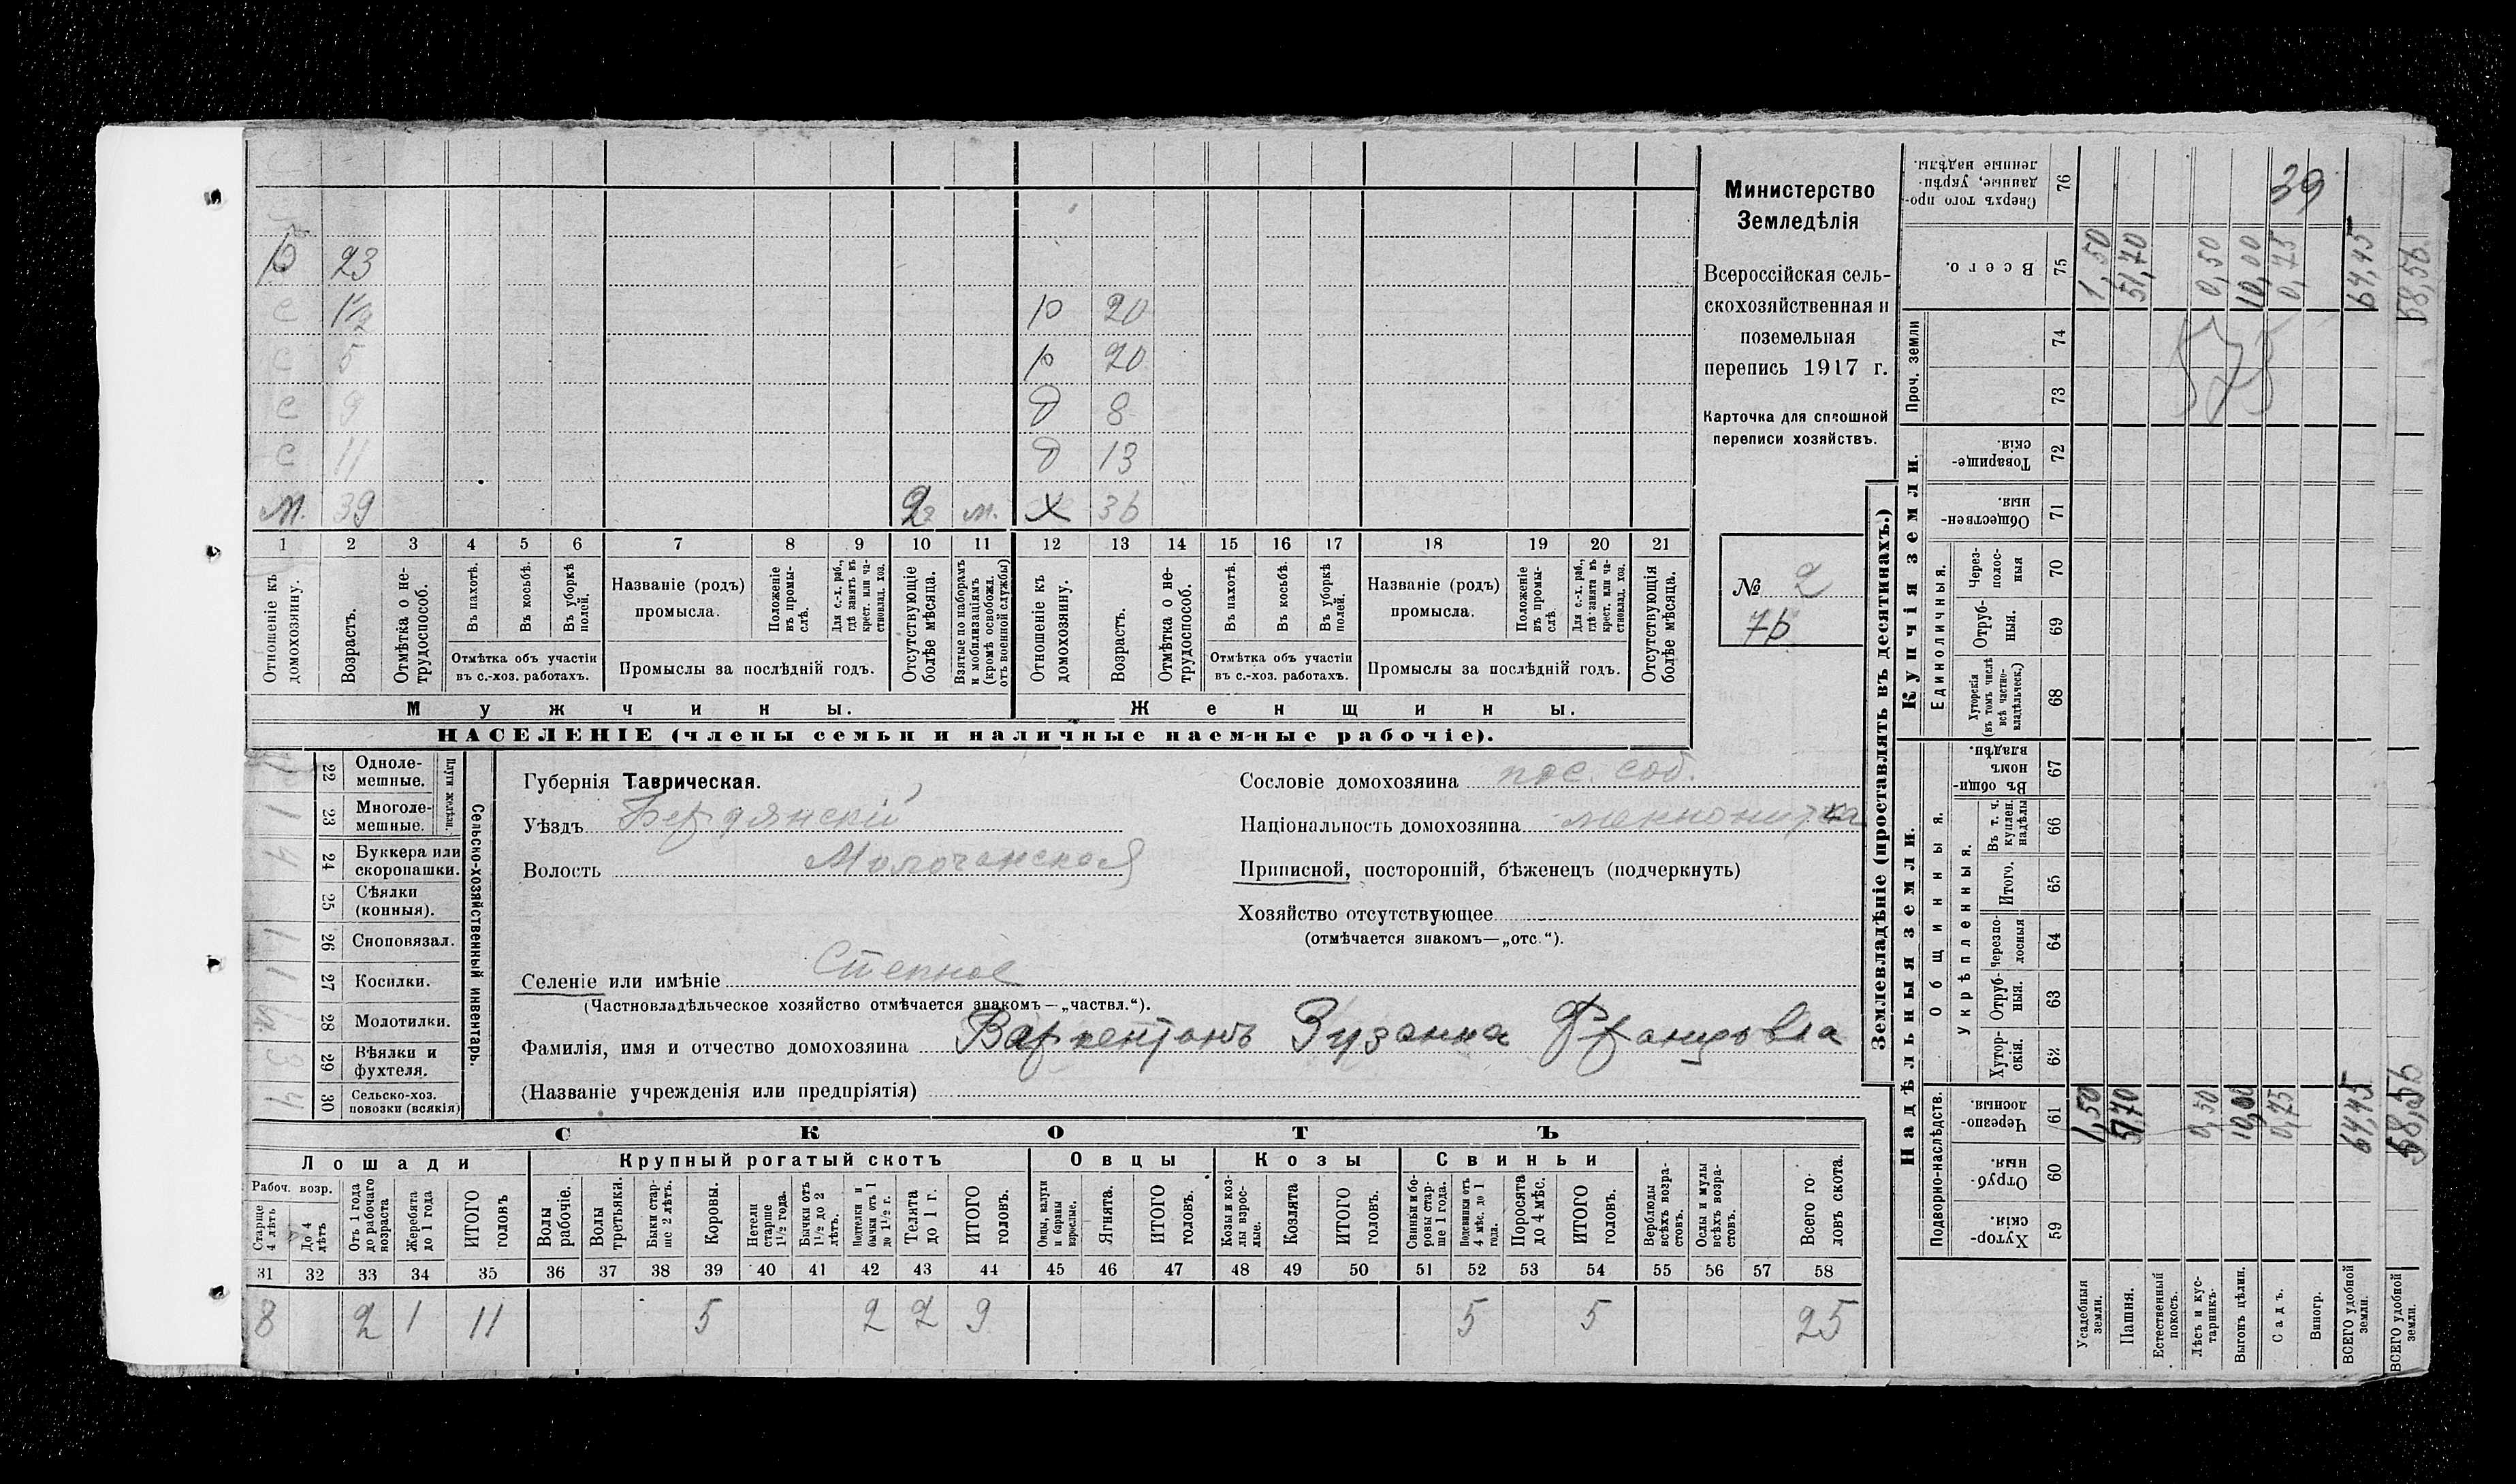 р 23
с 1½ р 20
с 5 р 20
с 9 д 8
с 11 д 13
м. 39 2 м. х 36
1 2 3 4 5 6 7 8 9 10 11 12 13 14 15 16 17 18 19 20 21
Отношеніе къ домохозяину.
Возрастъ.
Отмѣтка о не-трудоспособ.
Въ пахотѣ.
Въ косьбѣ.
Въ уборкѣ полей.
Отмѣтка объ участіи
въ с.-хоз. работахъ.
Названіе (родъ)
промысла.
Положеніе въ промы-слѣ.
Для с.-х. раб., гдѣ занятъ въ крест. или ча-стновлад. хоз.
Промыслы за послѣдній годъ.
Отсутствующіе болѣе мѣсяца.
Взятые по наборамъ и мобилизаціямъ (кромѣ освобожд. отъ военной службы)
Отношеніе къ домохозяину.
Возрастъ.
Отмѣтка о не-трудоспособ.
Въ пахотѣ.
Въ косьбѣ.
Въ уборкѣ полей.
Отмѣтка объ участіи
въ с.-хоз. работахъ.
Названіе (родъ)
промысла.
Положеніе въ промы-слѣ.
Для с.-х. раб., гдѣ занята въ крест. или ча-стновлад. хоз.
Промыслы за послѣдній годъ.
Отсутствующія болѣе мѣсяца.
Мужчины. Женщины.
НАСЕЛЕНІЕ (члены семьи и наличные наемные рабочіе).
Министерство
Земледѣлія
Всероссійская сель-
скохозяйственная и
поземельная
перепись 1917 г.
Карточка для сплошной
переписи хозяйствъ.
№ 2
76
Сельско-хозяйственный инвентарь.
Плуги желѣзн.
22 Одноле-мешные.
1 23 Многоле-мешные.
4 24 Буккера или скоропашки.
25 Сѣялки (конныя).
1 26 Сноповязал.
1 27 Косилки.
28 Молотилки.
3 29 Вѣялки и фухтеля.
4 30 Сельско-хоз. повозки (всякія)
Губернія Таврическая.
Уѣздъ Бердянскій
Волость Молочанская
Селеніе или имѣніе Степное
(Частновладѣльческое хозяйство отмѣчается знакомъ—„частвл.“).
Фамилія, имя и отчество домохозяина Варкентинъ Зузанна Францовна
(Названіе учрежденія или предпріятія)
Сословіе домохозяина пос. соб.
Національность домохозяина меннонитка
Приписной, посторонній, бѣженецъ (подчеркнуть)
Хозяйство отсутствующее
(отмѣчается знакомъ—„отс.“).
СКОТЪ
Лошади Крупный рогатый скотъ Овцы Козы Свиньи
Рабоч. возр.
Старше 4 лѣтъ
До 4 лѣтъ
Отъ 1 года до рабочаго возраста
Жеребята до 1 года
ИТОГО головъ
Волы рабочіе.
Волы третьяки.
Быки стар-ше 2 лѣтъ.
Коровы.
Нетели старше 1½ года.
Бычки отъ 1½ до 2 лѣтъ.
Подтелки и бычки отъ 1 до 1½ г.
Телята до 1 г.
ИТОГО головъ.
Овцы, валухи и бараны взрослые.
Ягнята.
ИТОГО головъ.
Козы и коз-лы взрос-лые.
Козлята
ИТОГО головъ.
Свиньи и бо-ровы стар-ше 1 года.
Подсвинки отъ 4 мѣс. до 1 года.
Поросята до 4 мѣс.
ИТОГО головъ.
Верблюды всѣхъ возра-стовъ.
Ослы и мулы всѣхъ возра-стовъ.
Всего го-ловъ скота.
31 32 33 34 35 36 37 38 39 40 41 42 43 44 45 46 47 48 49 50 51 52 53 54 55 56 57 58
8 2 1 11 5 2 2 9 5 5 25
Землевладѣніе (проставлять въ десятинахъ.)
Надѣльныя земли. Купчія земли.
Подворно-наслѣдств.
Общинныя.
Укрѣпленныя.
Единоличныя.
Проч. земли
Хутор-скія. 59
Отруб-ныя. 60
Черезпо-лосныя. 61
Хутор-скія. 62
Отруб-ныя. 63
Черезпо-лосныя 64
Итого. 65
Въ т. ч. куплен. надѣлы 66
Въ общин-номъ владѣн. 67
Хуторскія (въ томъ числѣ всѣ частно-владѣльческ.) 68
Отруб-ныя. 69
Через-полос-ныя 70
Обществен-ныя 71
Товарище-скія. 72
73
74
Всего. 75
Сверхъ того про-данные, укрѣп-ленные надѣлы. 76
Усадебныя земли. 1,50 1,50
Пашня. 51,70 51,70
Естественный покосъ.
Лѣсъ и кус-тарникъ. 0,50 0,50
Выгонъ цѣлин. 10,00 10,00
Садъ. 0,75 0,75
Виногр.
ВСЕГО удобной земли. 64,45 64,45
ВСЕГО удобной земли. 58,56 58,56
575
39